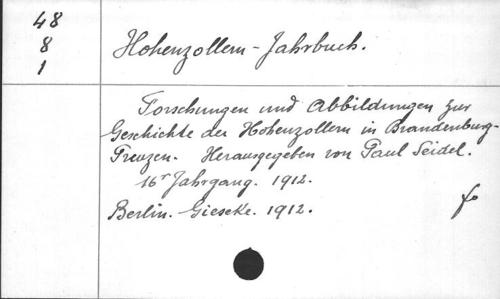 48
8
1
Hohenzollern-Jahrbuch.
Forschungen und Abbildungen zur
Geschichte der Hohenzollern in Brandenburg-
Preuzen. Herausgegeben von Paul Seidel.
16r Jahrgang. 1912.
Berlin. Giesecke. 1912.
fo